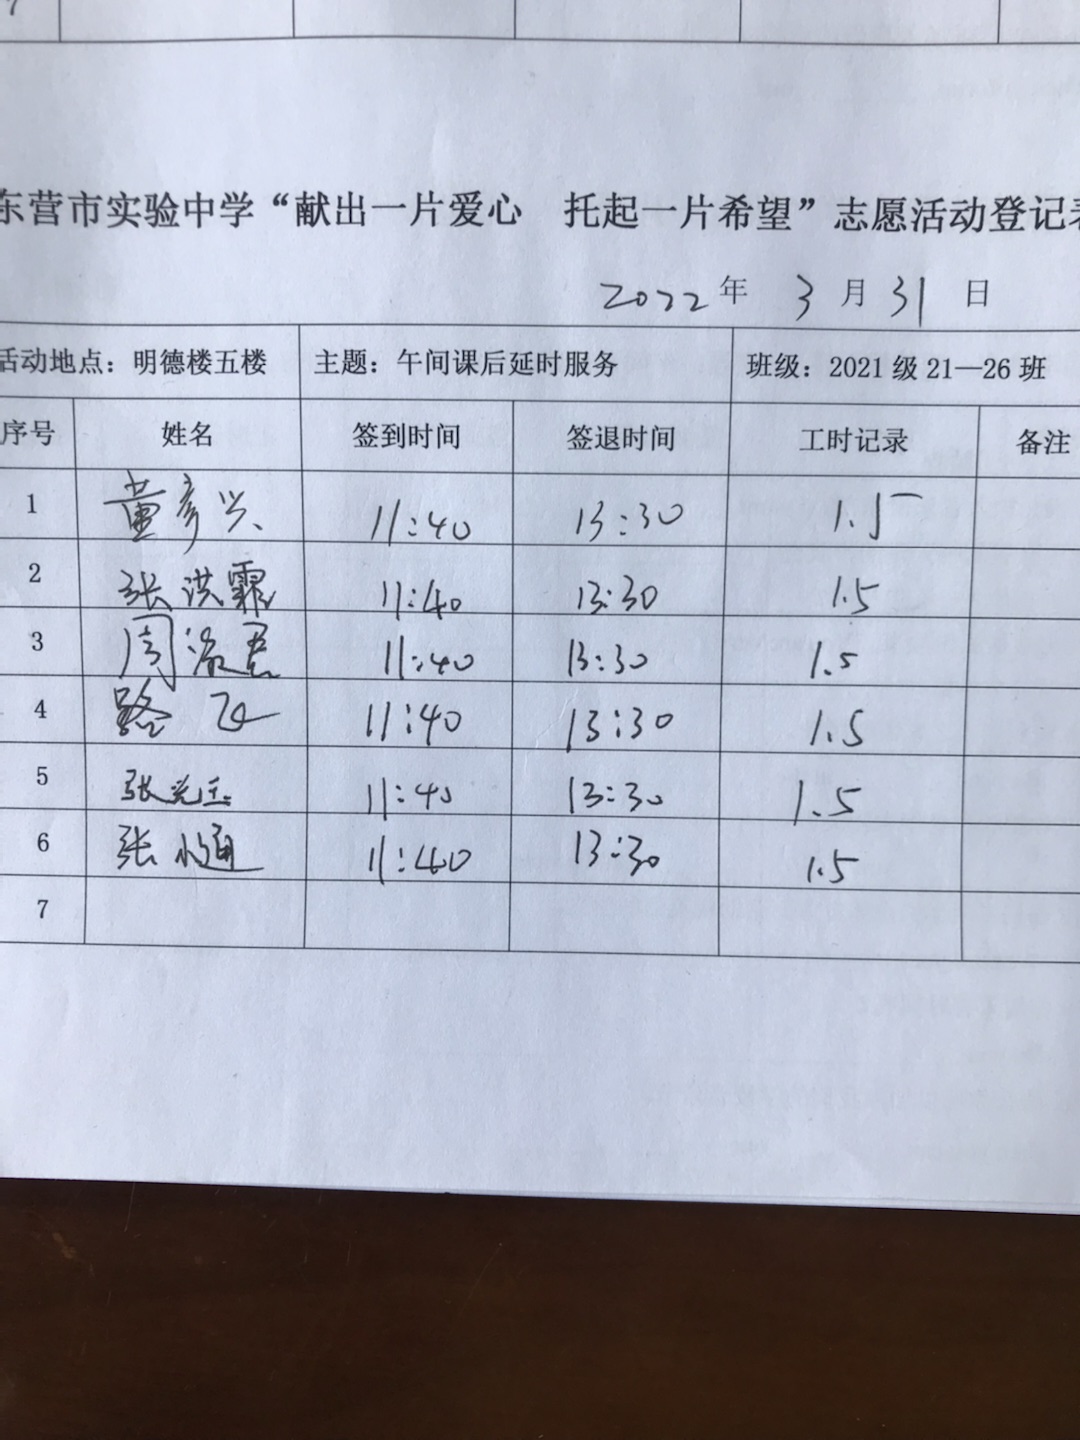 7
东营市实验中学“献出一片爱心 托起一片希望”志愿活动登记表
2022年 3月31日
活动地点：明德楼五楼 主题：午间课后延时服务 班级：2021级21—26班
序号 姓名 签到时间 签退时间 工时记录 备注
1 董彦兴 11:40 13:30 1.5
2 张洪霏 11:40 13:30 1.5
3 周 11:40 13:30 1.5
4 路飞 11:40 13:30 1.5
5 张 11:40 13:30 1.5
6 张 11:40 13:30 1.5
7